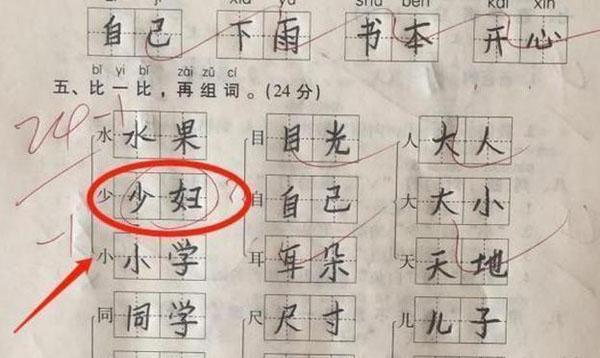 自己 下雨 书本 开心
bǐ yi bǐ zài zǔ cí
五、比一比,再组词。(24分)
24-1
水 水果 目 目光 人 大人
少 少妇 自 自己 大 大小
-1
小 小学 耳 耳朵 天 天地
同 同学 尺 尺寸 儿 儿子